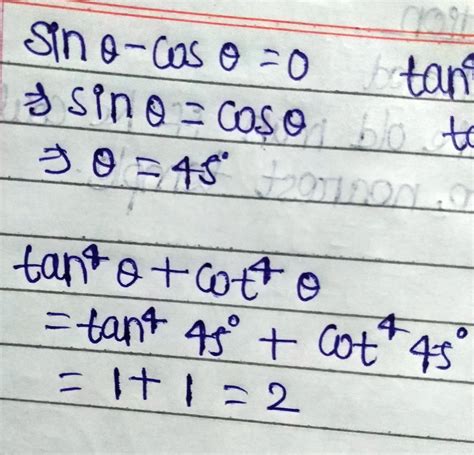 sin θ - cos θ = 0
⇒ sin θ = cos θ
⇒ θ = 45°
tan⁴ θ + cot⁴ θ
= tan⁴ 45° + cot⁴ 45°
= 1 + 1 = 2
tan⁴